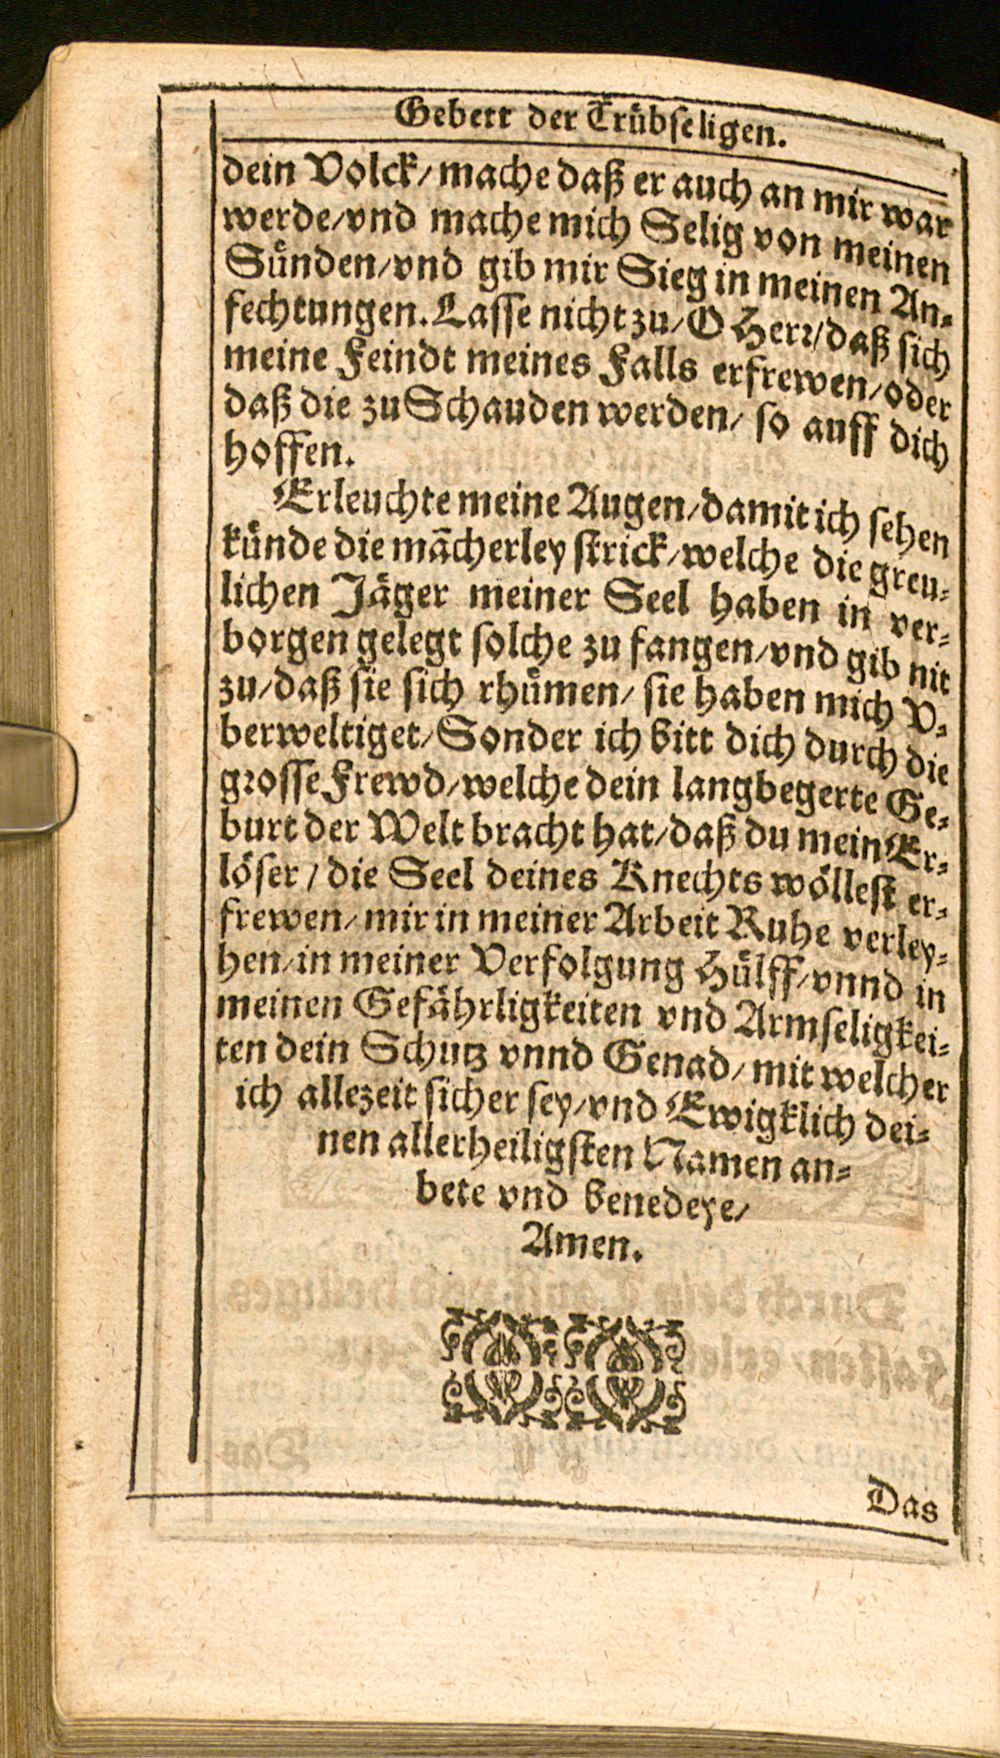 Gebett der Trübseligen.
dein Volck/ mache daß er auch an mir war
werde/vnd mache mich Selig von meinen
Sünden/vnd gib mir Sieg in meinen An-
fechtungen. Lasse nicht zu/ O Herr/daß sich
meine Feindt meines Falls erfrewen/oder
daß die zu Schauden werden/ so auff dich
hoffen.
Erleuchte meine Augen/damit ich sehen
künde die mācherley strick/welche die greu-
lichen Jäger meiner Seel haben in ver-
borgen gelegt solche zu fangen/vnd gib nit
zu/daß sie sich rhümen/ sie haben mich V-
berweltiget/Sonder ich bitt dich durch die
grosse Frewd/welche dein langbegerte Ge-
burt der Welt bracht hat/daß du mein Er-
löser / die Seel deines Knechts wöllest er-
frewen/ mir in meiner Arbeit Ruhe verley-
hen/in meiner Verfolgung Hülff/vnnd in
meinen Gefährligkeiten vnd Armseligkei-
ten dein Schutz vnnd Genad/ mit welcher
ich allezeit sicher sey/vnd Ewigklich dei-
nen allerheiligsten Namen an-
bete vnd benedeye/
Amen.
Das